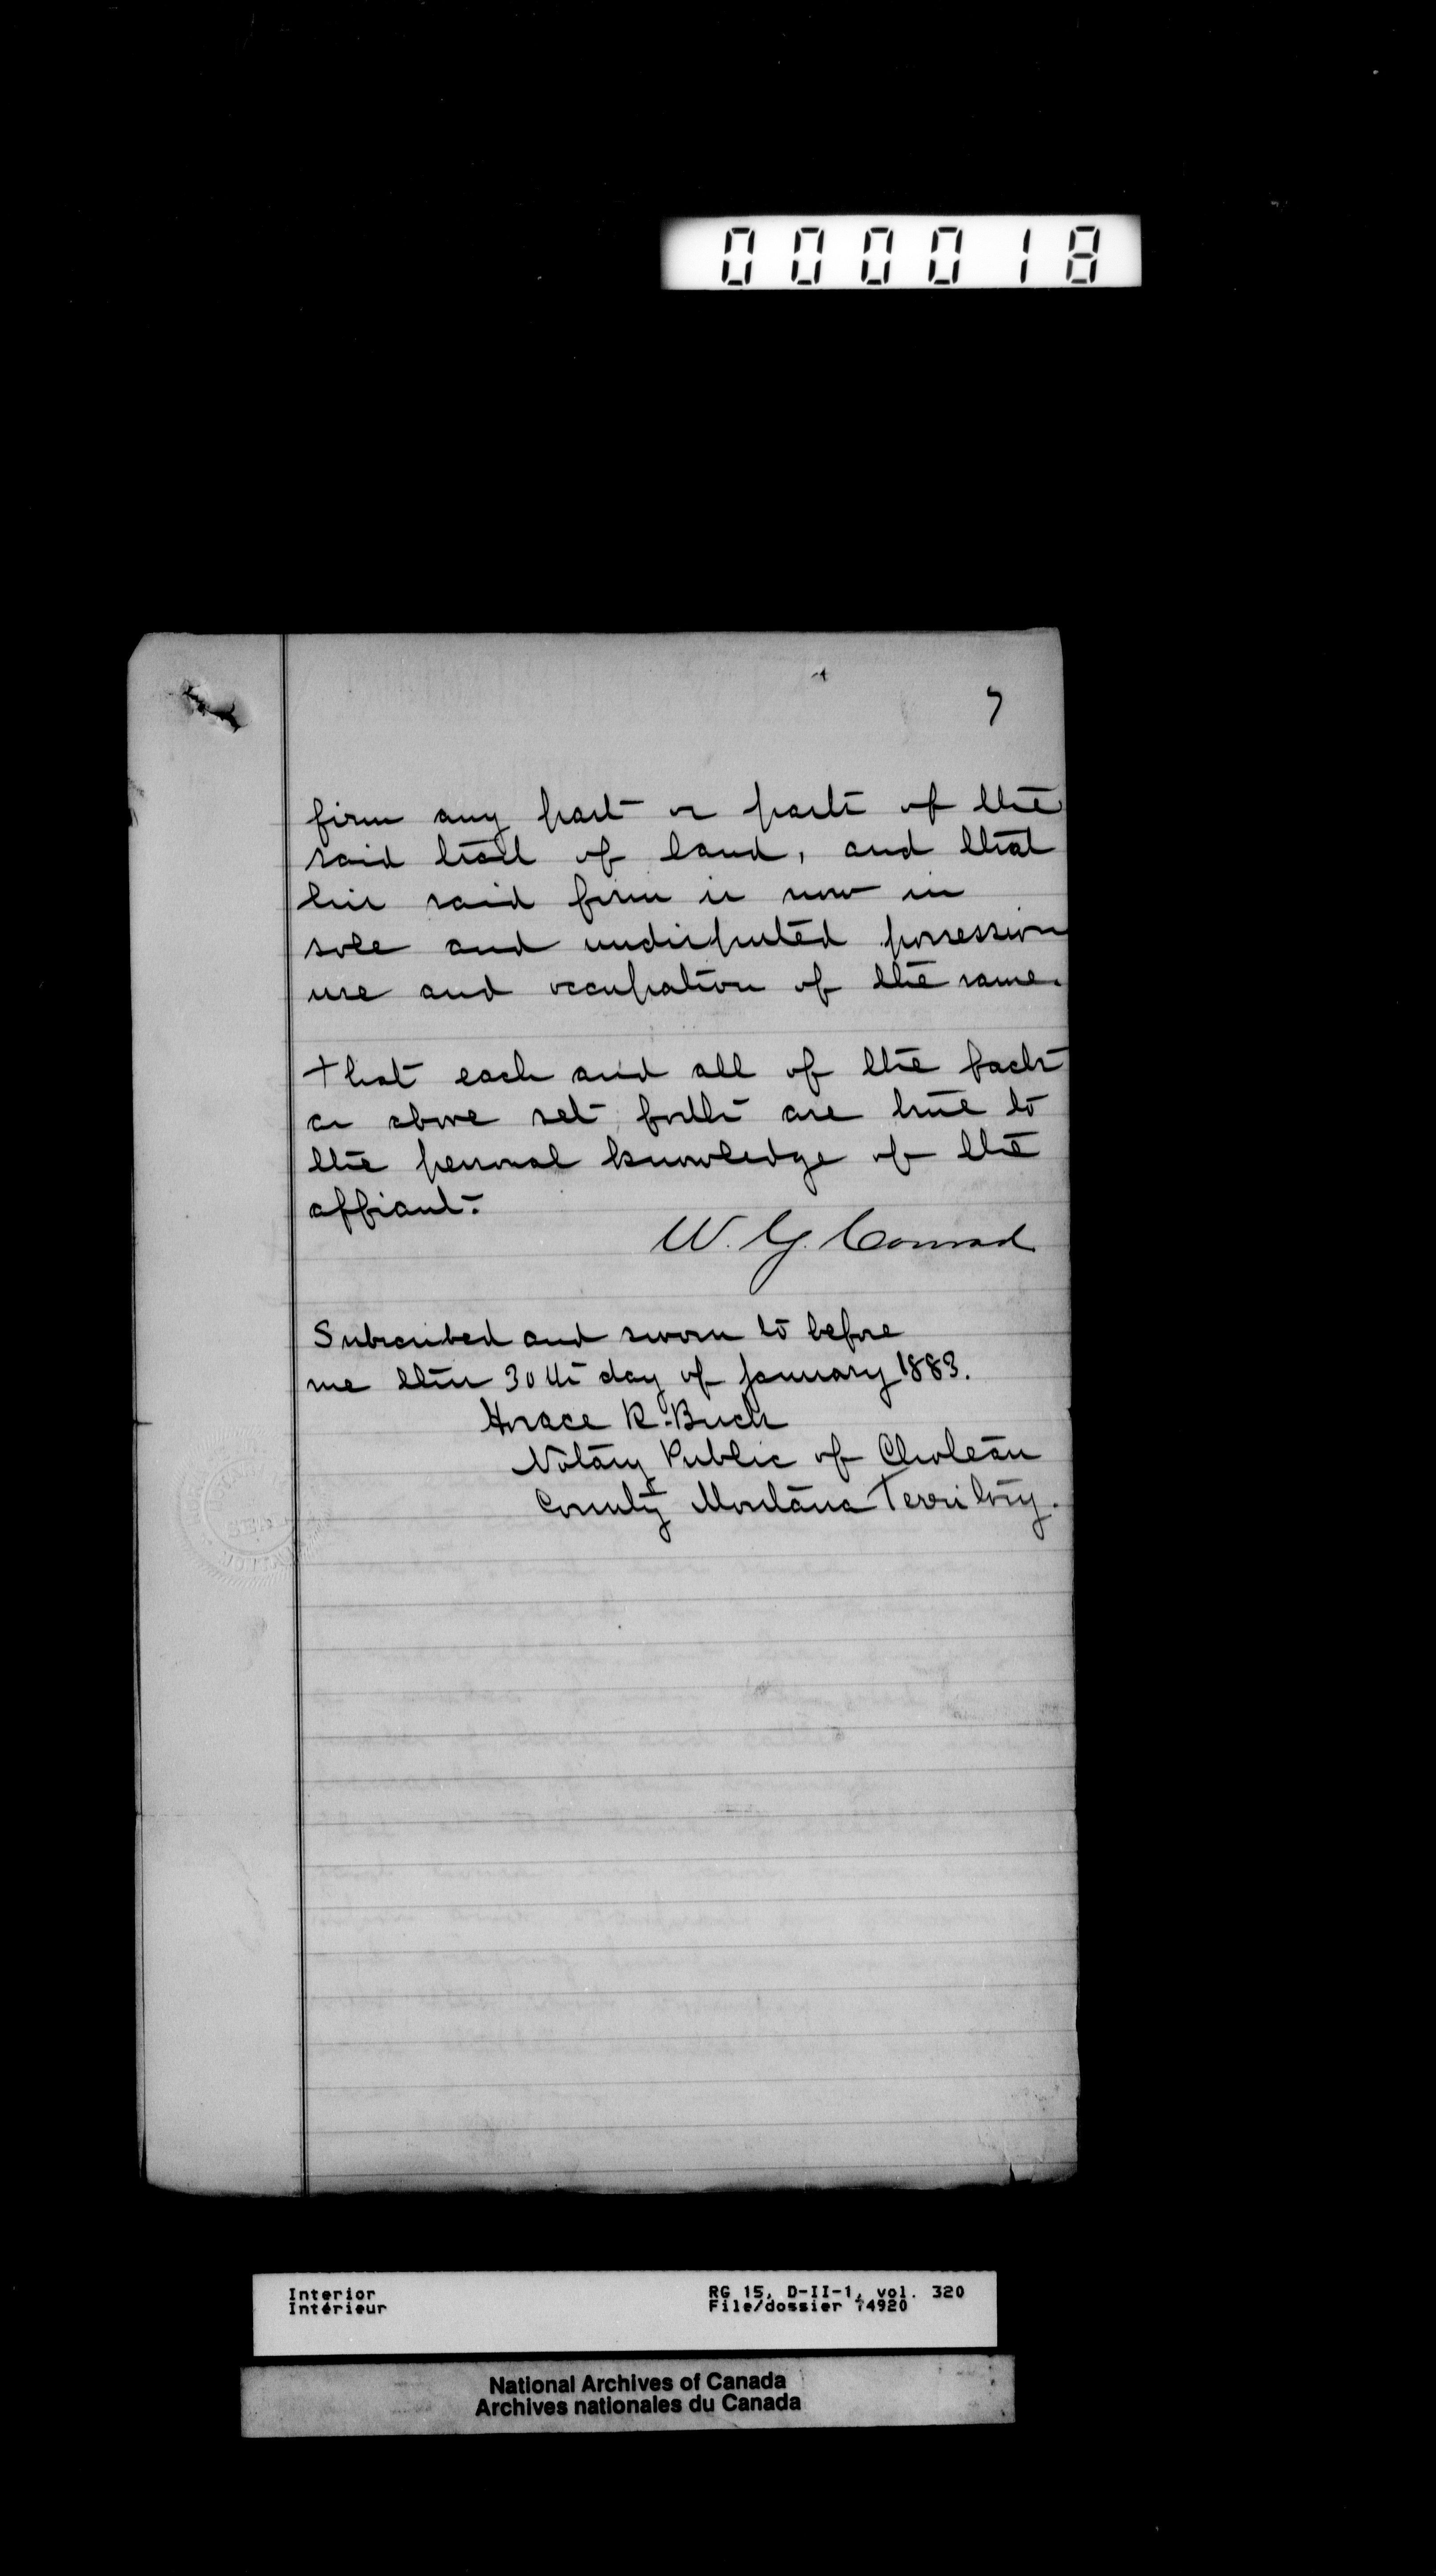 000018
7
firm any part or parts of the
said tract of land, and that
his said firm is now in
sole and undisputed possession
use and occupation of the same.
That each and all of the facts
as above set forth are true to
the personal knowledge of the
affiant.
W. G. Conrad
Subscribed and sworn to before
me this 30th day of January 1883.
Horace R. Buck
Notary Public of Choteau
County Montana Territory.
Interior RG 15, D-II-1, vol. 320
Intérieur File/dossier 74920
National Archives of Canada
Archives nationales du Canada